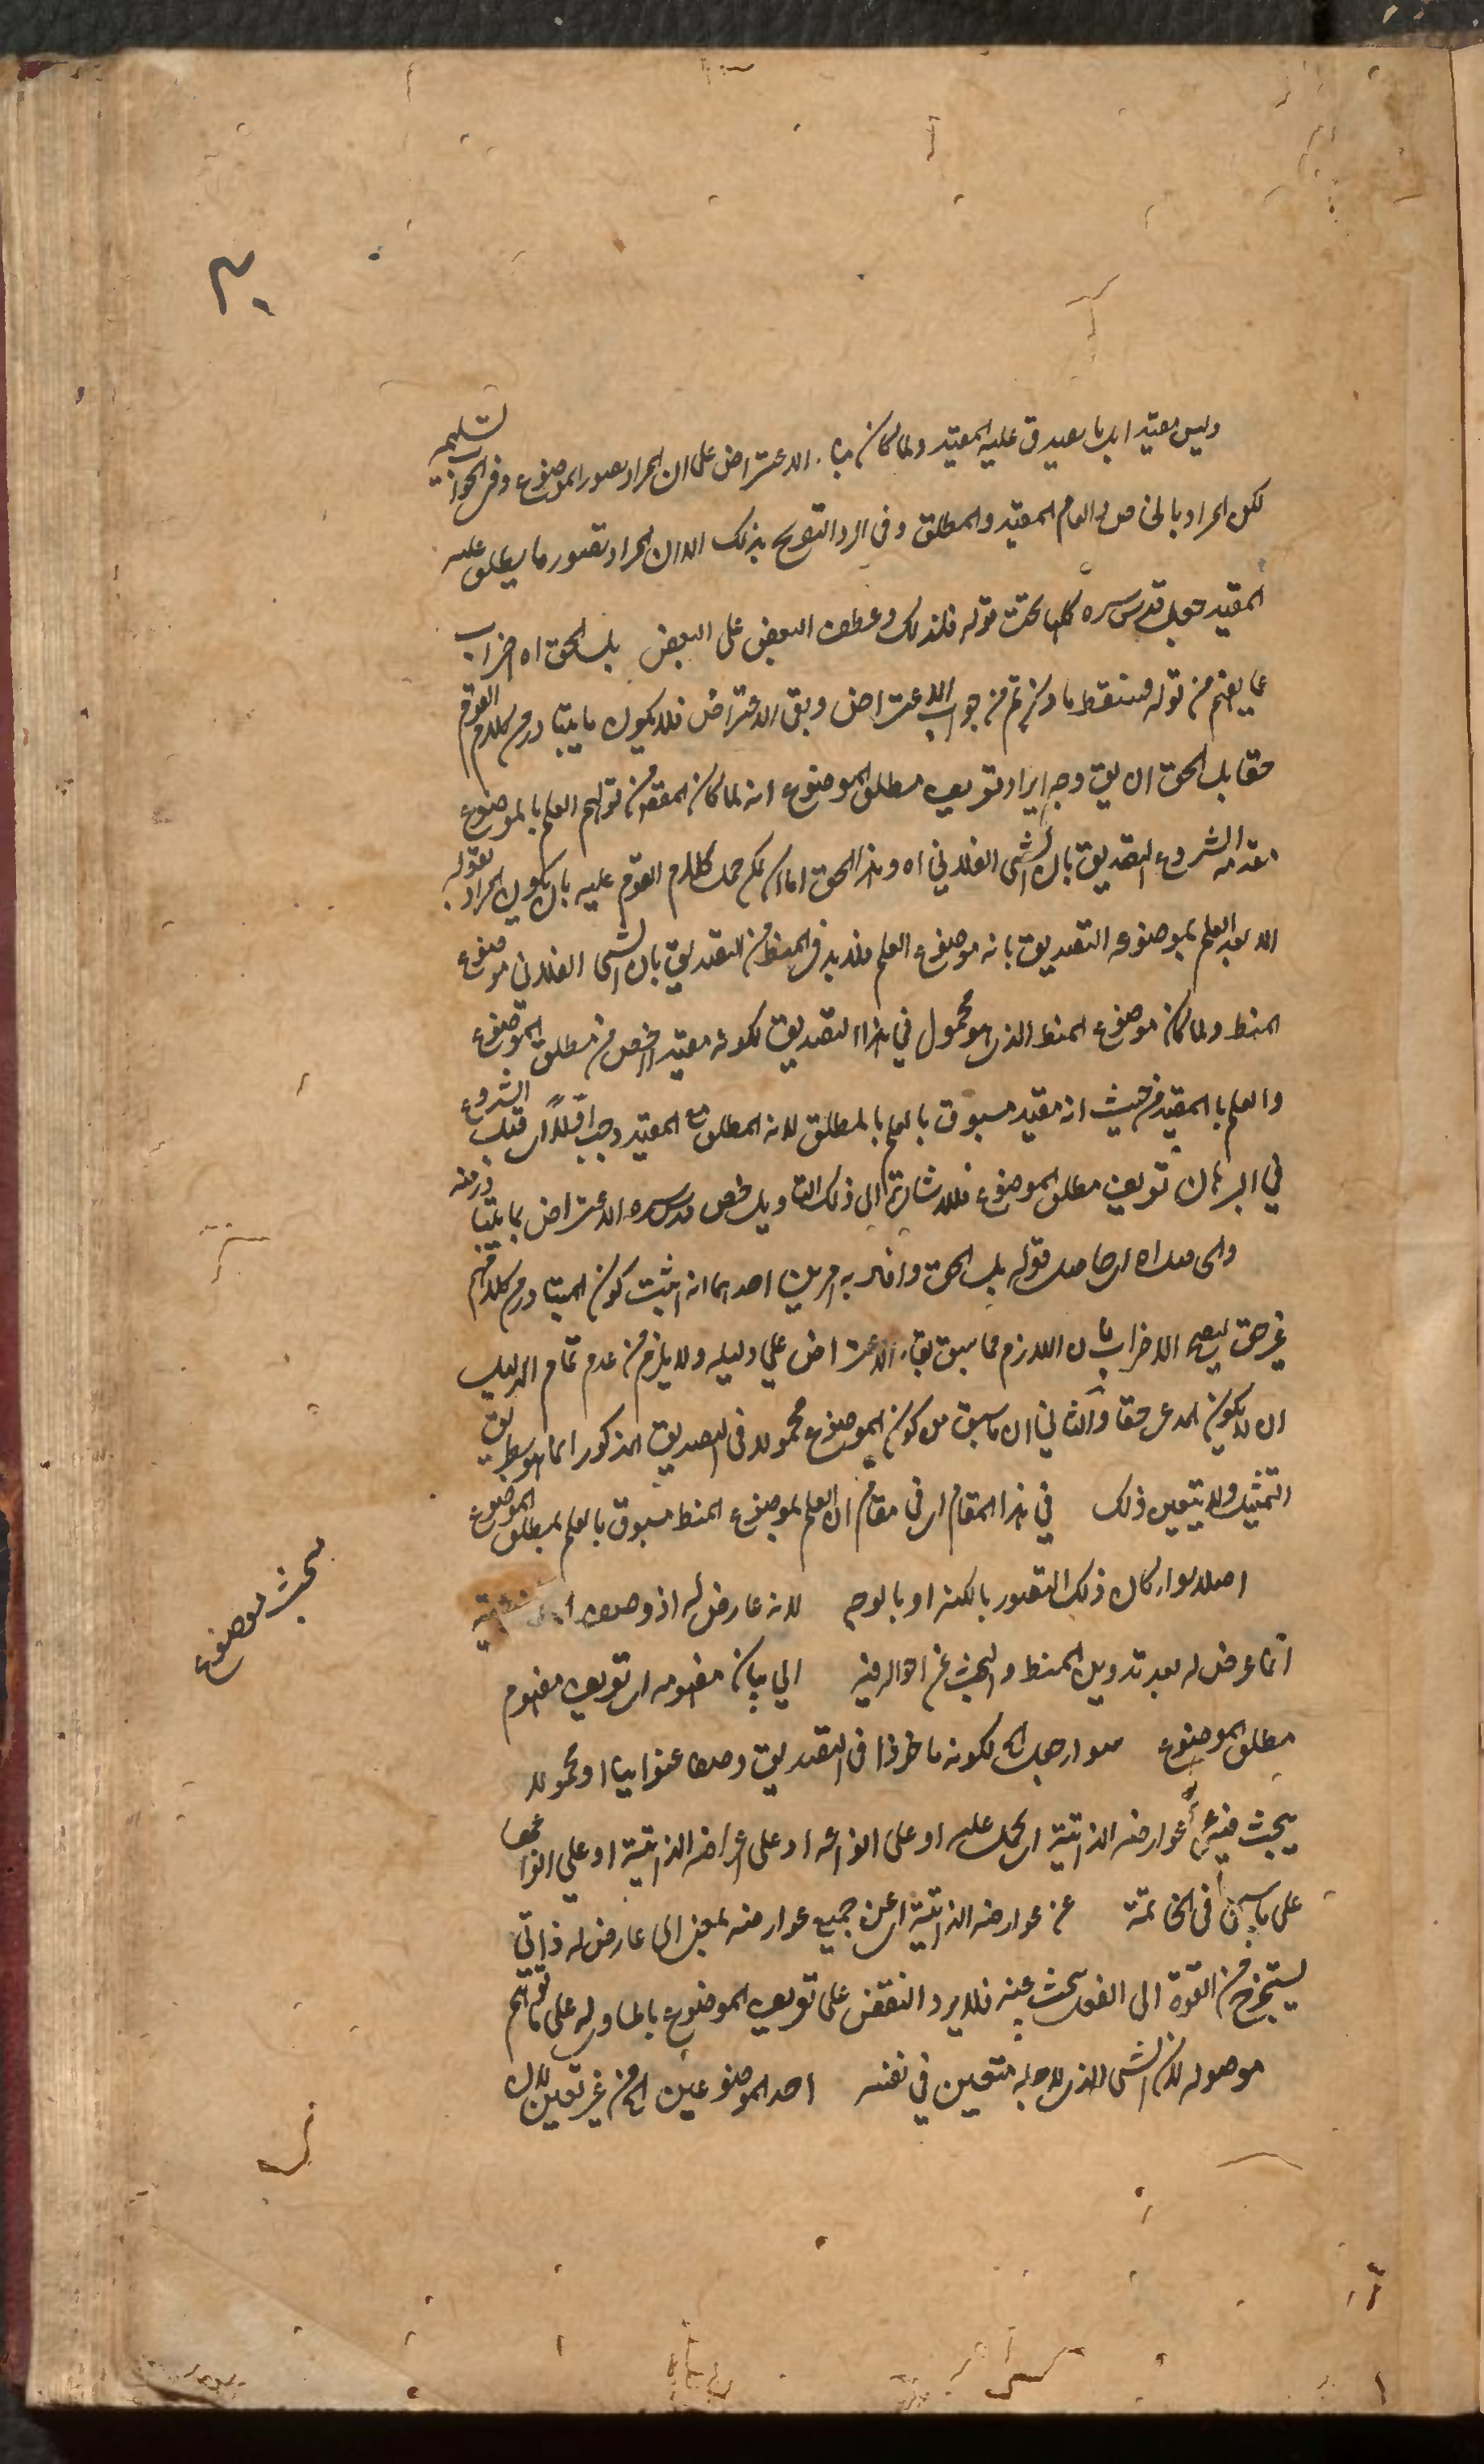 وليس مقيد ابل ما يصدق عليه المقيد ولما كان مبناء الاعتراض على ان المراد تصور الموضوع وفى الجواب تسليمه
لكن المراد بالخاص والعام المقيد والمطلق وفى الرد التصريح بذلك الا ان المراد تصور ما يطلق عليه
المقيد جعل قدس سره كلها تحت قوله فلذلك وعطف البعض على البعض بل الحق اه اضراب
عما يفهم من قوله فسقط ما ذكرتم من جواب الاعتراض وبقى الاعتراض فلا يكون ما يتبادر من كلام القوم
حقا بل الحق ان يق وجه ايراد تعريف مطلق الموضوع انه لما كان المقص من قولهم العلم بالموضوع
مقدمة الشروع التصديق بان الشى الفلانى اه وهذا الحق اما ان يمكن حمل كلام القوم عليه بان يكون المراد بقوله
الا بعد العلم بموضوعه التصديق بانه موضوع العلم فلا بد فى المنط من التصديق بان الشى الفلانى موضوع
المنط ولما كان موضوع المنط الذى هو محمول فى هذا التصديق لكونه مقيدا اخص من مطلق الموضوع
والعلم بالمقيد من حيث انه مقيد مسبوق بالعلم بالمطلق لانه المطلق مع المقيد وجب اولا اى قبل الشروع
فى البرهان تعريف مطلق الموضوع فللاشارة الى ذلك التاويل خص قدس سره الاعتراض بما يتبادر منه
قوله بل الحق وافاد به امرين احدهما انه اثبت كون المتبادر من كلامهم
غير حق ليصح الاضراب بان اللازم مما سبق بقاء الاعتراض على دليله ولا يلزم من عدم تمام الدليل
ان لا يكون المدعى حقا والثانى ان ما سبق من كون الموضوع محمولا فى التصديق المذكور انما هو بطريق
التمثيل ولا يتعين ذلك فى هذا المقام اى فى مقام ان العلم بموضوع المنط مسبوق بالعلم بمطلق الموضوع
اصلا سواء كان ذلك التصور بالكنه او بالوجه لانه عارض له اذ وصف
انما عرض له بعد تدوين المنط والبحث عن احواله فيه الى بيان مفهومه اى تعريف مفهوم
مطلق الموضوع سواء جعل اه لكونه ماخوذا فى التصديق وصفا عنوانيا او محمولا
يبحث فيه عن عوارضه الذاتية اى يحمل عليه او على انواعه او على اعراضه الذاتية او على انواعها
على ما سيجئ فى الخاتمة عن عوارضه الذاتية اى عن جميع عوارضه بمعنى اى عارض له ذاتى
يستخرج من القوة الى الفعل يبحث عنه فلا يرد النقض على تعريف الموضوع
موصوله لان الشى الذى لا جله متعين فى نفسه احد الموضوعين اه من غير تعيين لان
مبحث موضوع